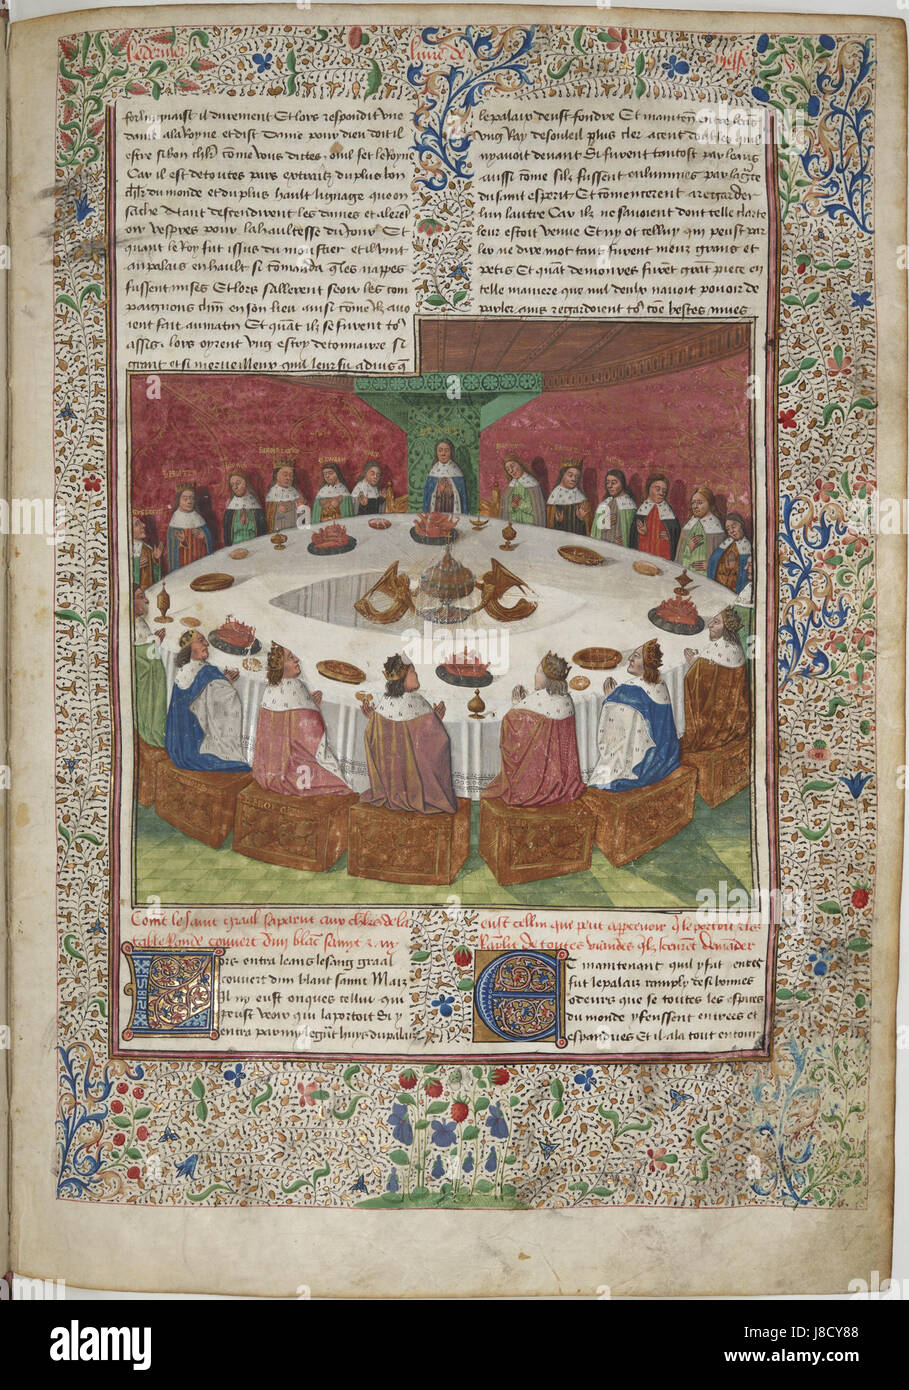 Le dernier liure de
dame ala Royne et dist Dame pour dieu doit il
estre si bon chlr come vous dictes, ouil fet la Royne
Car il est de toutes pars extraitz du plus bon
chlrs du monde et du plus hault lignage que on
sache Atant descendirent les dames et
oir vespres pour la haultesse du Jour Et
quant le Roy fut issus du moustier et il vint
au palais enhault si comanda qles nappes
fussent mises Et lors sallerent seoir les com
paignons en son lieu aussi come ilz auo
ient fait au matin Et quat ilz se furent
assis, lors oyrent vng de tonnairre si
grant et si merueilleux quil leur fu aduis q
le palais deust fondre Et entra leans
vng Ray de souleil plus cler a cent doubles quil
ny auoit deuant Si furent tantost par leans
aussi come silz fussent enlumines par la
du saint esperit Et comencerent a regarder
lun lautre Car ilz ne sauoient dont telle clarte
leur estoit venue Et ny ot celluy qui peust par
ler ne dire mot tant furent meuz grans et
petis Et quat demoures furent grat piece en
telle maniere que nul deulx nauoit pouoir de
parler ains regardoient coe bestes mues
Comet le saint graal saparut aux chlrs de la
table Ronde couuert dun blac samit
eust cellui que peut apperceuoir q le portoit
de toutes viandes
Lors entra leans le saing graal
couuert dun blant samit Maiz
Il ny eust onques cellui qui
peust veoir qui la portoit Si y
entra parmy le grant huys du palaiz
Et maintenant quil y fut entre
fut le palaiz ramply de si bonnes
odeurs que se toutes les espices
du monde y feussent entrees et
espandues Et il ala tout entour
alamy
Image ID: J8CY88
www.alamy.com